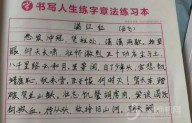 书写人生练字章法练习本
满江红
怒发冲冠 凭栏处 潇潇雨歇 抬望
眼 仰天长啸 壮怀激烈 三十功名尘与土
八千里路云和月 莫等闲 白了少年头 空悲切
靖康耻 犹未雪 臣子恨 何时灭 驾长车 踏
破贺兰山缺 壮志 饥餐胡虏肉 笑谈渴饮
匈奴血 待从头 收拾旧山河 朝天阙